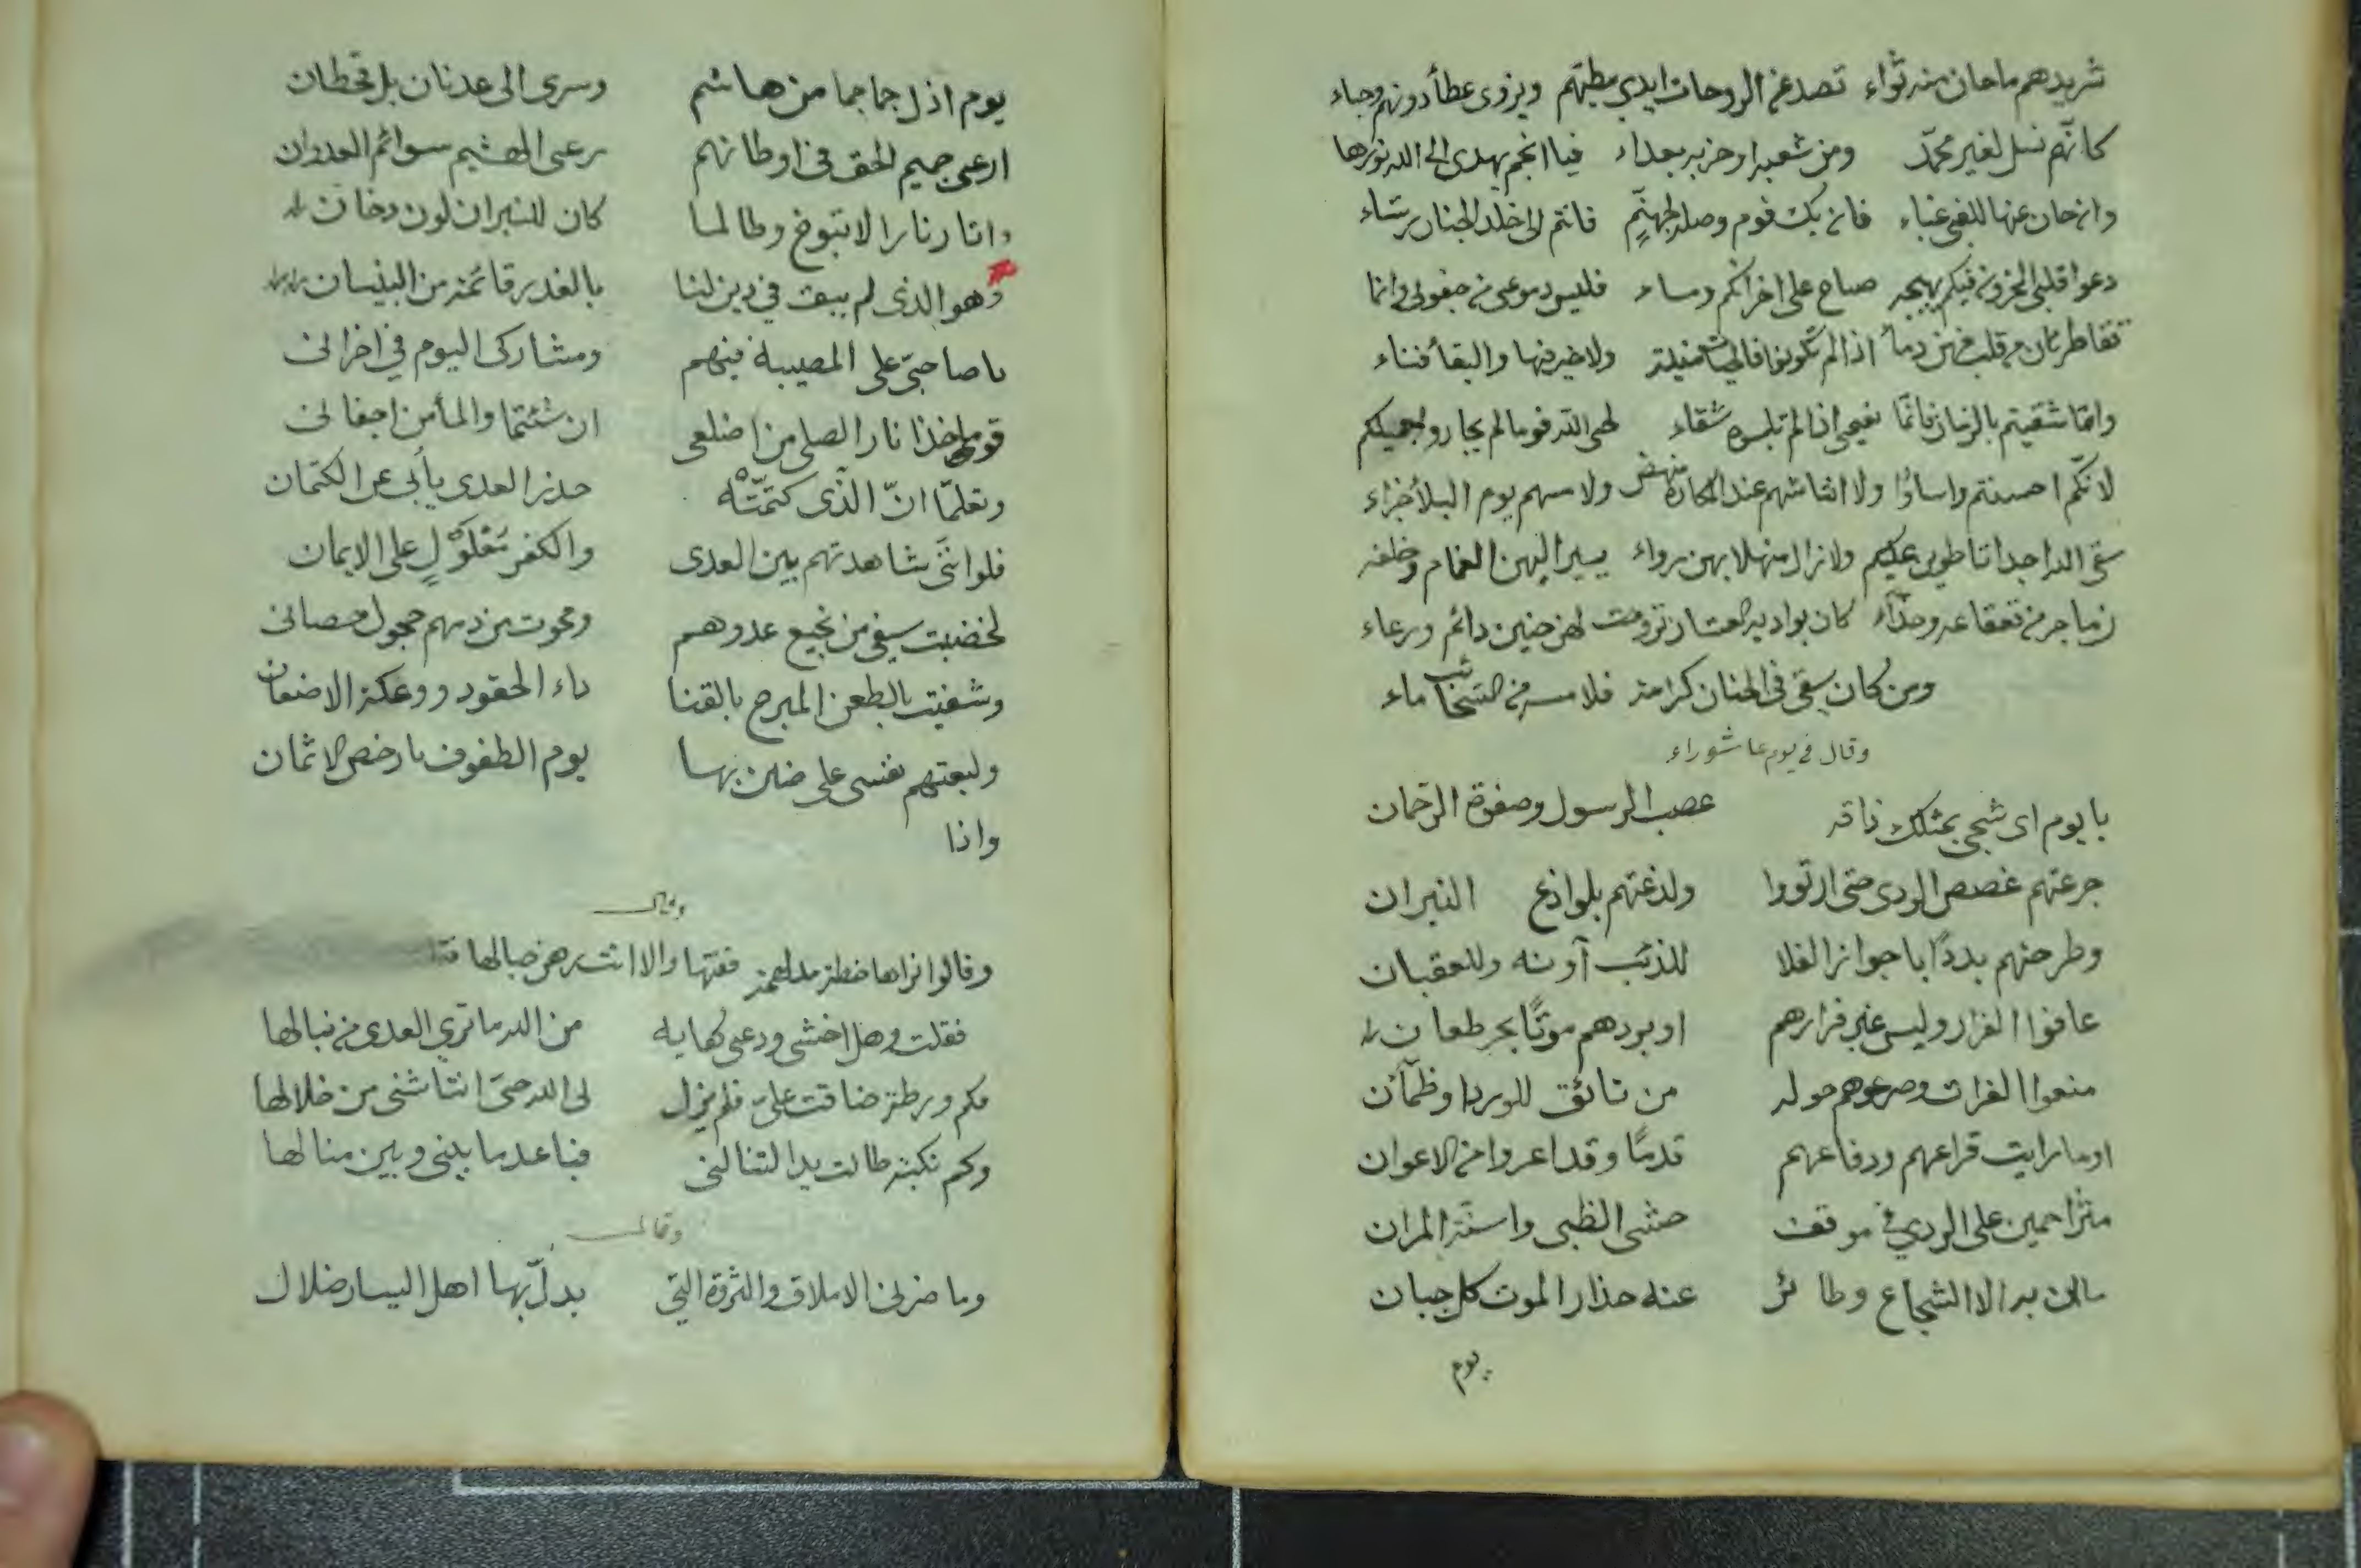 شريدهم ما حان منه ثواء تصد عن الروحات ايدي مطيهم ويزوى عطأ دونهم وحباء
كانّهم نسل لغير محمّد ومن شعبه او حزبه بعداء فيا انجم يهدى الى الله نورها
وان حان عنها للغي غباء فان يك قوم وصله لجهنّم فانتم الى خلد الجنان رشاء
دعوا قلبي المحزون فيكم يهيجه صباح على اخراكم ومساء فليس دموعى من جفونى وانما
تقاطرن من قلب فهن دمأ اذا لم تكونوا فالحيات منية ولا خير فيها والبقأ فناء
وامّا شقيتم بالزمان فانمّا نعيمى اذا لم تلبسوه شقاء لحى الله قوما لم يجازوا جميلكم
لانكّم احسنتم واساؤا ولا انتاشهم عند المكاره منهض ولا مسهم يوم البلأ جزاء
سقى الله اجداثا طوين عليكم ولا زال منهلا بهن رواء يسير اليهن الغمام وخلفه
زماجر من تعقاعه وحدآء كان بواديه العشار تروحت لهن حنين دائم ورغاء
ومن كان يسقى فى الجنان كرامة فلا مسه من السحائب ماء
وقال في يوم عاشوراء
يا يوم اى شجى بمثلك ذاقه عصب الرسول وصفوة الرحّمان
جرعتهم غصص الردى حتى ارتووا ولدغتهم بلواذع النيران
وطرحتهم بددًا باجواز الفلا للذئب آونه وللعقبان
عافوا الفرار وليس غير فرارهم او بردهم موتًا بحر طعان
منعوا الفرات وصرعوهم حوله من تائق للورد او ظمآن
اوما رايت قراعهم ودفاعهم قدمًا وقد اعروا من الاعوان
متزاحمين على الردي في موقف حشى الظبى واسنة المران
ما ان به الا الشجاع وطائر عنه حذار الموت كل جبان
يوم
يوم اذل جماجما من هاشم وسرى الى عدنان بل قحطان
ارعى جميم الحق فى اوطانهم رعى الهشيم سوائم العدوان
وانار نارا لا تبوخ وطالما كان للنيران لون دخان
وهو الذى لم يبق في دين لنا بالغدر قائمة من البنيان
يا صاحبىّ على المصيبة فيهم ومشاركى اليوم في احزانى
قوما خذا نار الصلى من اضلعى ان شئتما والمأمن اجفانى
وتعلمّا انّ الذّى كتمتّه حذر العدى يأبى عن الكتمان
فلو اننَّى شاهدتهم بين العدى والكفر مَعْلوّلٍ على الايمان
لخضبت سيفى من نجيع عدوهم ومحوت من دمهم حجول حصانى
وشفيت بالطعن المبرح بالقنا داء الحقود ووعكة الاضغان
ولبعتهم نفسى على ضنن بها يوم الطفوف بارخص الاثمان
واذا
وقال
وقالوا نراها خطة مدلهمة ففتها والا انت رهن حبالها
فقلت وهل اخشى ودعى كهايه من الله ما ترى العدى من نبالها
فكم ورطة ضاقت علىّ فلم يزل لى الله حتى انتاشنى من خلالها
وكم نكبة طالت يدا لتنالنى فباعد ما بينى وبين منالها
وقال
وما ضرنى الاملاق والثروة التى يدلّ بها اهل اليسار ضلال